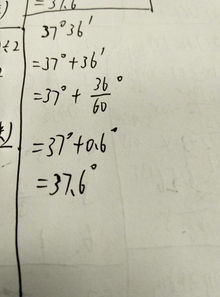 = 37.6
37°36′
=37°+36′
=37°+36/60°
=37°+0.6°
=37.6°
÷2